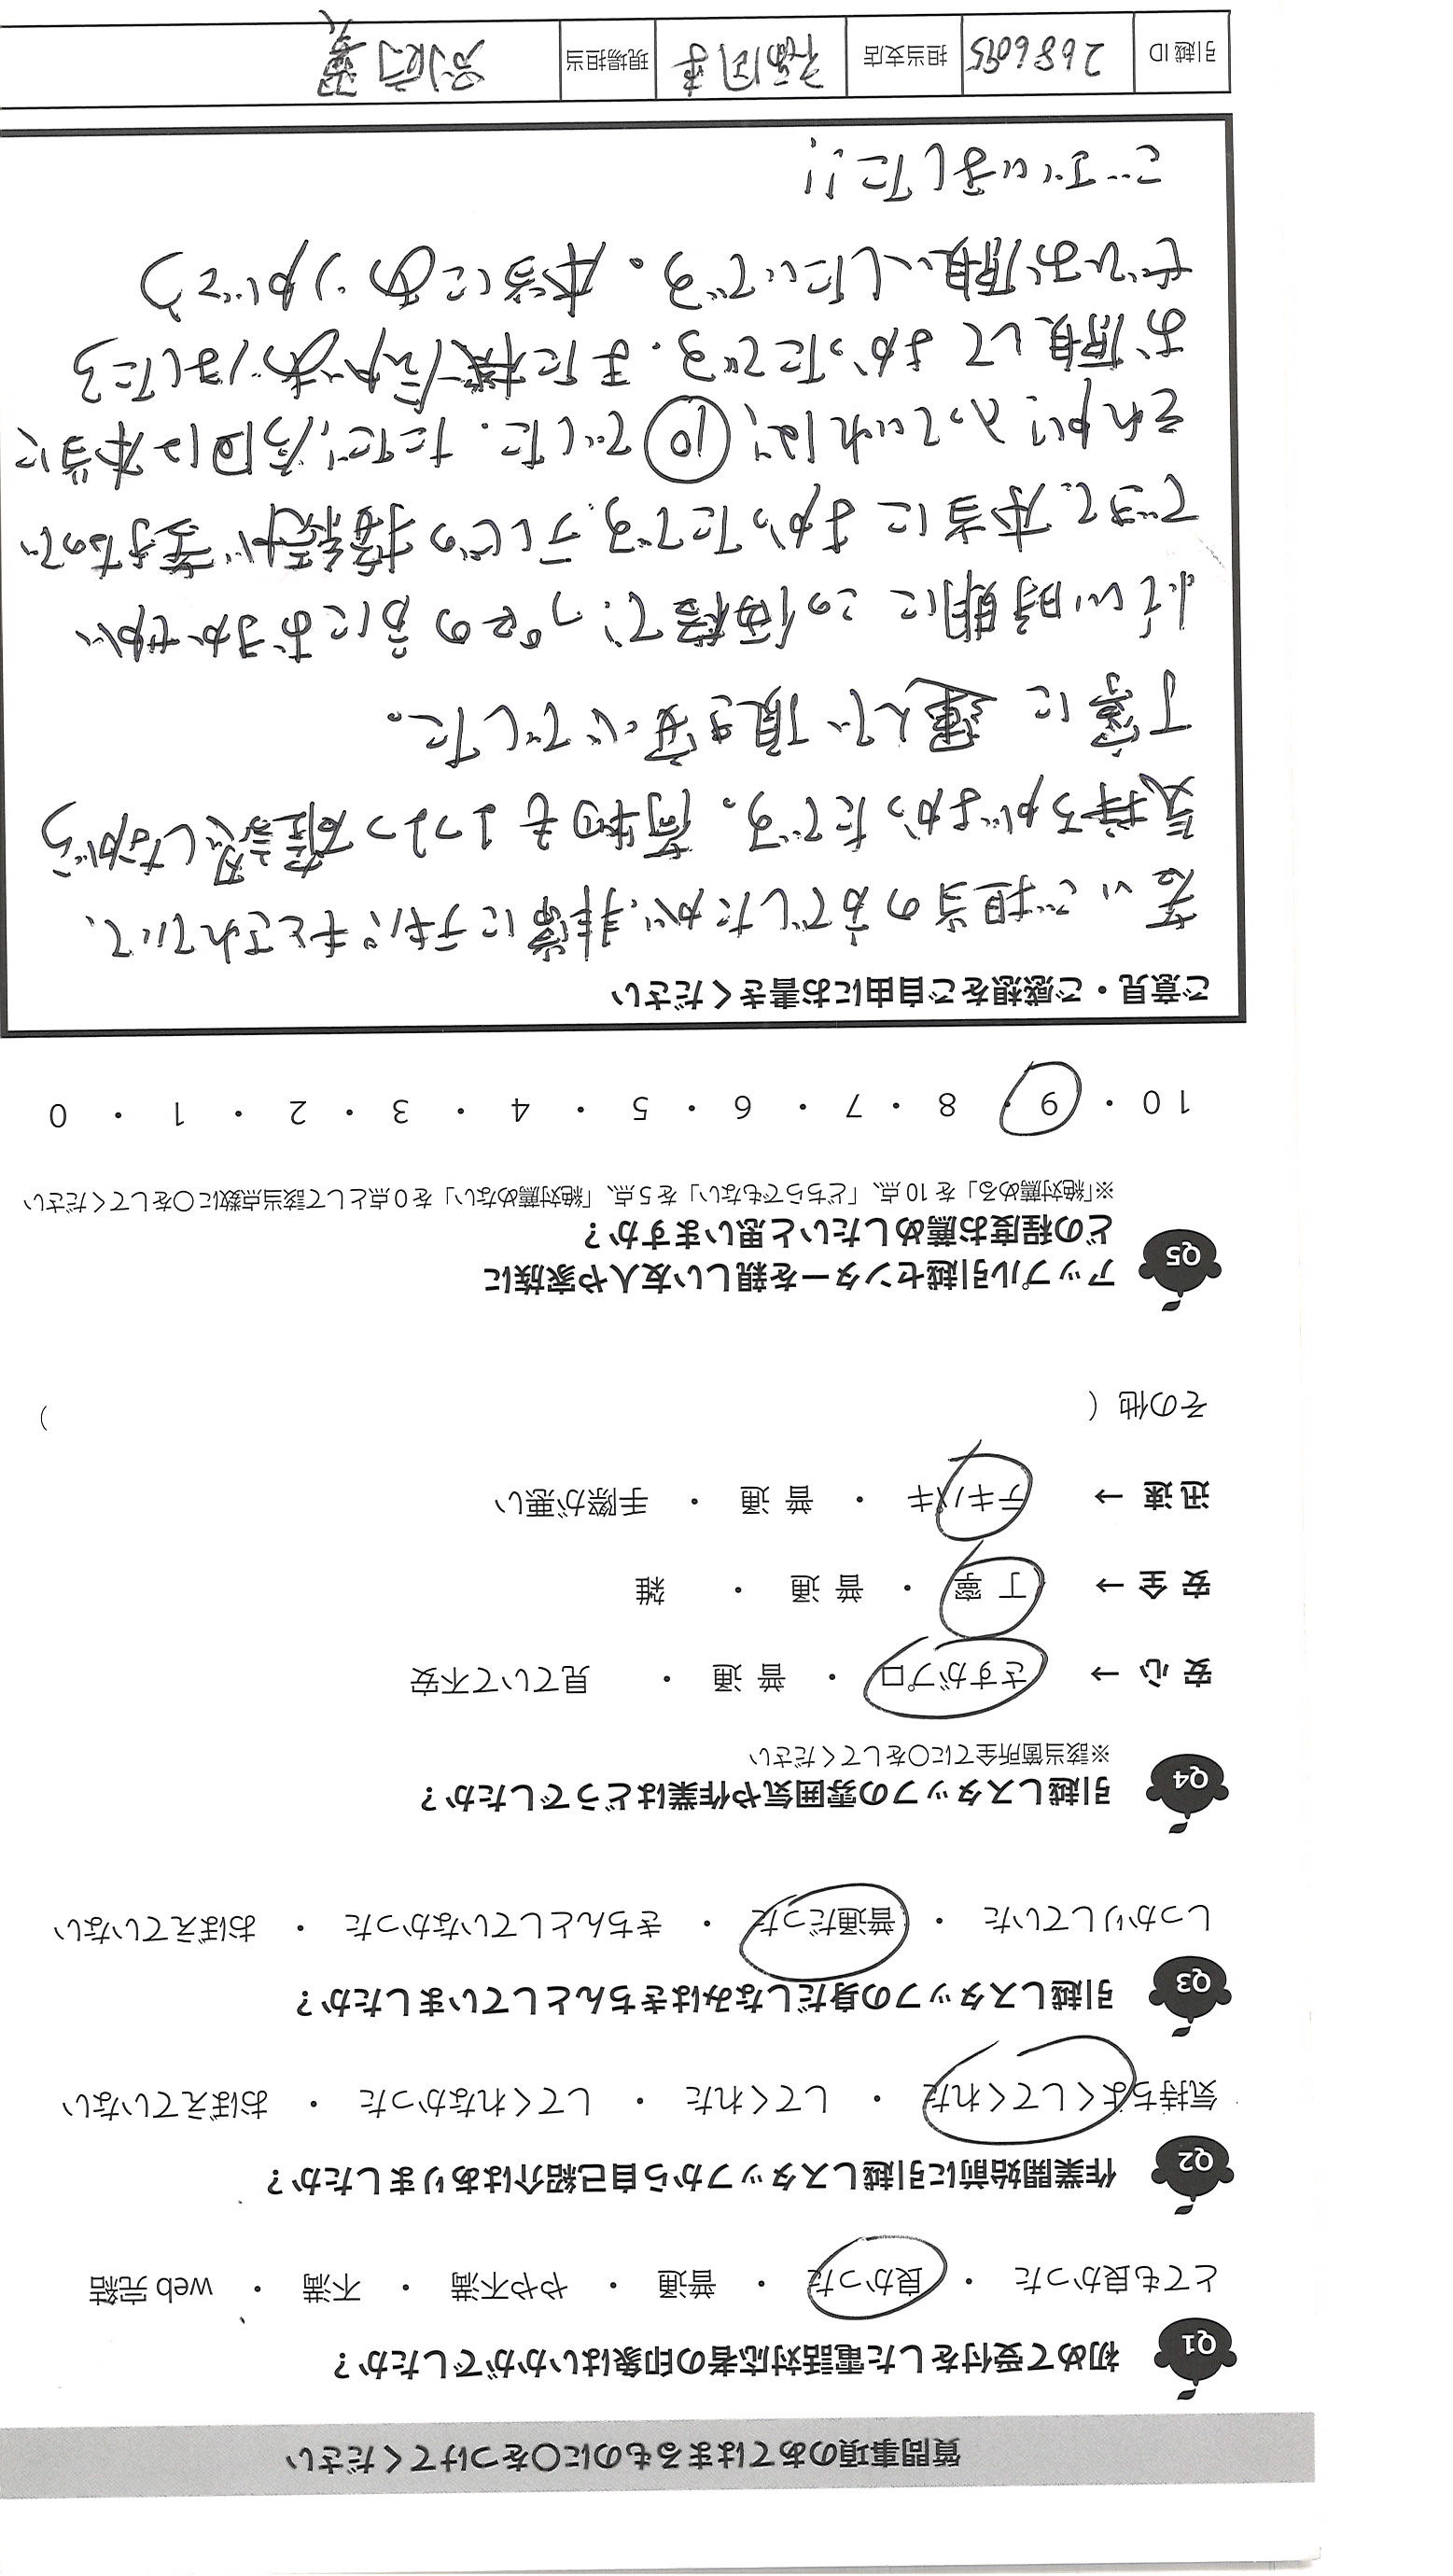 質問事項のあてはまるものに○をつけてください
Q1 初めて受付をした電話対応者の印象はいかがでしたか？
とても良かった ・ 良かった ・ 普通 ・ やや不満 ・ 不満 ・ web 完結
Q2 作業開始前に引越しスタッフから自己紹介はありましたか？
気持ちよくしてくれた ・ してくれた ・ してくれなかった ・ おぼえていない
Q3 引越しスタッフの身だしなみはきちんとしていましたか？
しっかりしていた ・ 普通だった ・ きちんとしていなかった ・ おぼえていない
Q4 引越しスタッフの雰囲気や作業はどうでしたか？
※該当箇所全てに○をしてください
安心 → さすがプロ ・ 普通 ・ 見ていて不安
安全 → 丁寧 ・ 普通 ・ 雑
迅速 → テキパキ ・ 普通 ・ 手際が悪い
その他 （ ）
Q5 アップル引越センターを親しい友人や家族に
どの程度お薦めしたいと思いますか？
※「絶対薦める」を 10 点、「どちらでもない」を 5 点、「絶対薦めない」を 0 点として該当点数に○をしてください
10 ・ 9 ・ 8 ・ 7 ・ 6 ・ 5 ・ 4 ・ 3 ・ 2 ・ 1 ・ 0
ご意見・ご感想をご自由にお書きください
若いご担当の方でしたが、非常にテキパキとされていて、
気持ちがよかったです。荷物も1つ1つ確認しながら
丁寧に運んで頂き安心でした。
忙しい時期にこの価格で、プロの方におまかせが
できて本当によかったです。テレビの接続が
それが入っていれば、⑩でした。ただ、今回は本当に
お願してよかったです。また機会がありましたら
ぜひお願いしたいです。本当にありがとう
ございました!!
引越ID 2686095 担当支店 福岡東 現場担当